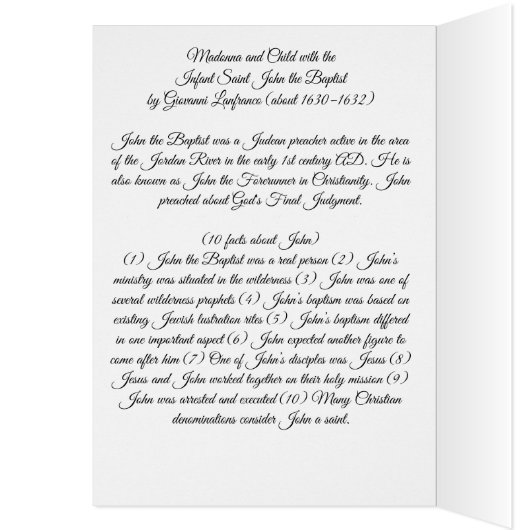 Madonna and Child with the
Infant Saint John the Baptist
by Giovanni Lanfranco (about 1630-1632)
John the Baptist was a Judean preacher active in the area
of the Jordan River in the early 1st century AD. He is
also known as John the Forerunner in Christianity. John
preached about God's Final Judgment.
(10 facts about John)
(1) John the Baptist was a real person (2) John's
ministry was situated in the wilderness (3) John was one of
several wilderness prophets (4) John's baptism was based on
existing Jewish lustration rites (5) John's baptism differed
in one important aspect (6) John expected another figure to
come after him (7) One of John's disciples was Jesus (8)
Jesus and John worked together on their holy mission (9)
John was arrested and executed (10) Many Christian
denominations consider John a saint.